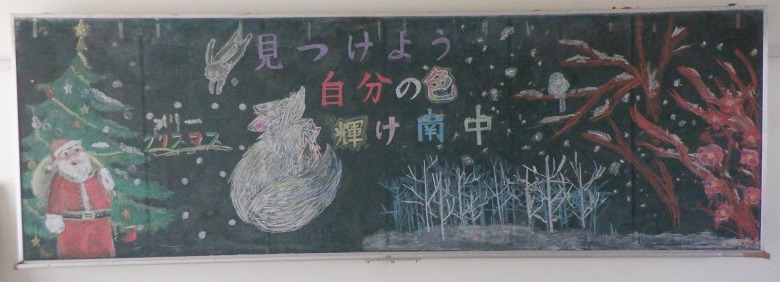 見つけよう
自分の色
輝け南中
メリー
クリスマス